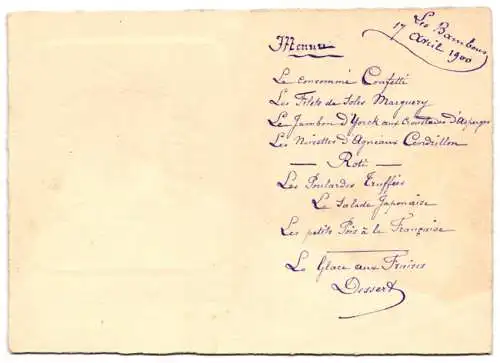 Les Bambous
17 Avril 1900
Menu
Le consommé Confetti
Les Filets de Soles Marguery
Le Jambon d'Yorck aux Croustades d'Asperges
Les Noisettes d'Agneaux Cendrillon
— Roti —
Les Poulardes Truffées
La Salade Japonaise
Les petits Pois à la Française
La Glace aux Fraises
Dessert